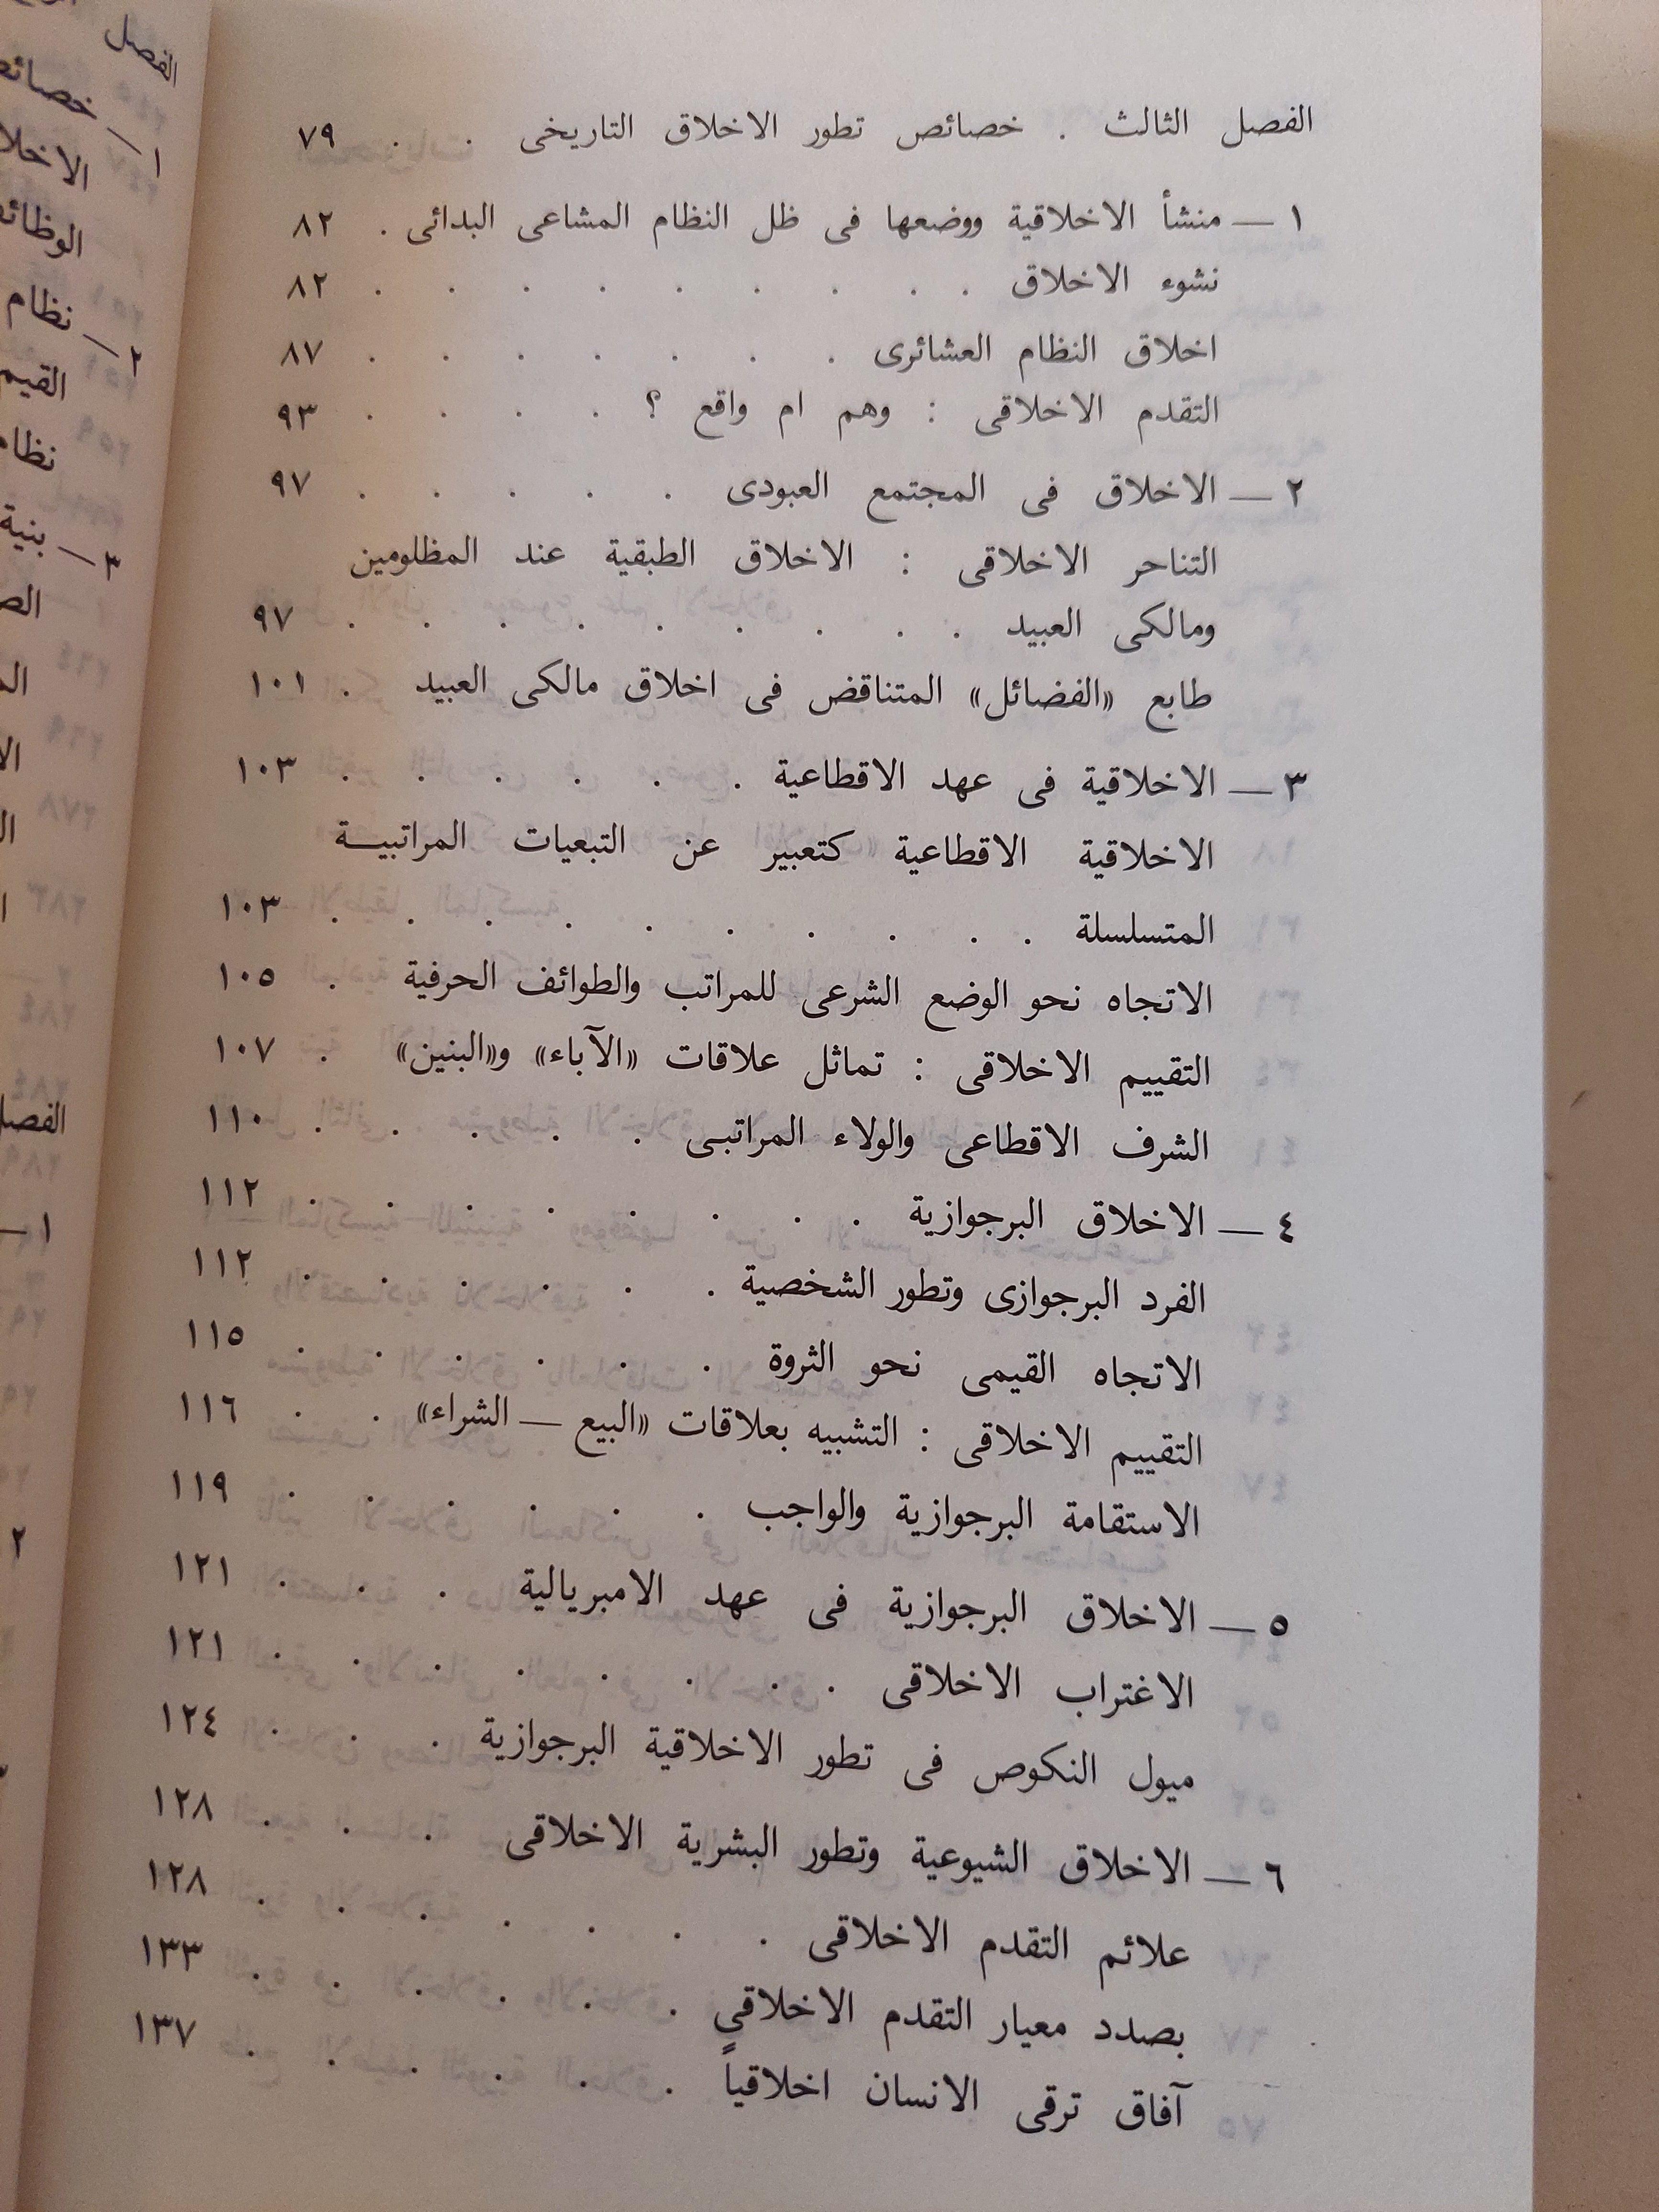 الفصل الثالث . خصائص تطور الاخلاق التاريخى . . ٧٩
١ — منشأ الاخلاقية ووضعها فى ظل النظام المشاعى البدائى . ٨٢
نشوء الاخلاق . . . . . . . . . ٨٢
اخلاق النظام العشائرى . . . . . . . ٨٧
التقدم الاخلاقى : وهم ام واقع ؟ . . . . ٩٣
٢ — الاخلاق فى المجتمع العبودى . . . . . ٩٧
التناحر الاخلاقى : الاخلاق الطبقية عند المظلومين
ومالكى العبيد . . . . . . . . . ٩٧
طابع «الفضائل» المتناقض فى اخلاق مالكى العبيد . ١٠١
٣ — الاخلاقية فى عهد الاقطاعية . . . . . . ١٠٣
الاخلاقية الاقطاعية كتعبير عن التبعيات المراتبيـــة
المتسلسلة . . . . . . . . . . ١٠٣
الاتجاه نحو الوضع الشرعى للمراتب والطوائف الحرفية . ١٠٥
التقييم الاخلاقى : تماثل علاقات «الآباء» و«البنين» . ١٠٧
الشرف الاقطاعى والولاء المراتبى . . . . . ١١٠
٤ — الاخلاق البرجوازية . . . . . . . . ١١٢
الفرد البرجوازى وتطور الشخصية . . . . . . ١١٢
الاتجاه القيمى نحو الثروة . . . . . . ١١٥
التقييم الاخلاقى : التشبيه بعلاقات «البيع — الشراء» . . ١١٦
الاستقامة البرجوازية والواجب . . . . . . ١١٩
٥ — الاخلاق البرجوازية فى عهد الامبريالية . . . ١٢١
الاغتراب الاخلاقى . . . . . . . . ١٢١
ميول النكوص فى تطور الاخلاقية البرجوازية . . . ١٢٤
٦ — الاخلاق الشيوعية وتطور البشرية الاخلاقى . . . ١٢٨
علائم التقدم الاخلاقى . . . . . . . ١٢٨
بصدد معيار التقدم الاخلاقى . . . . . . ١٣٣
آفاق ترقى الانسان اخلاقياً . . . . . . ١٣٧
الفصل
١ —
٢ — نظام
القيم
٣ — بنية
الفصل
١ —
٢